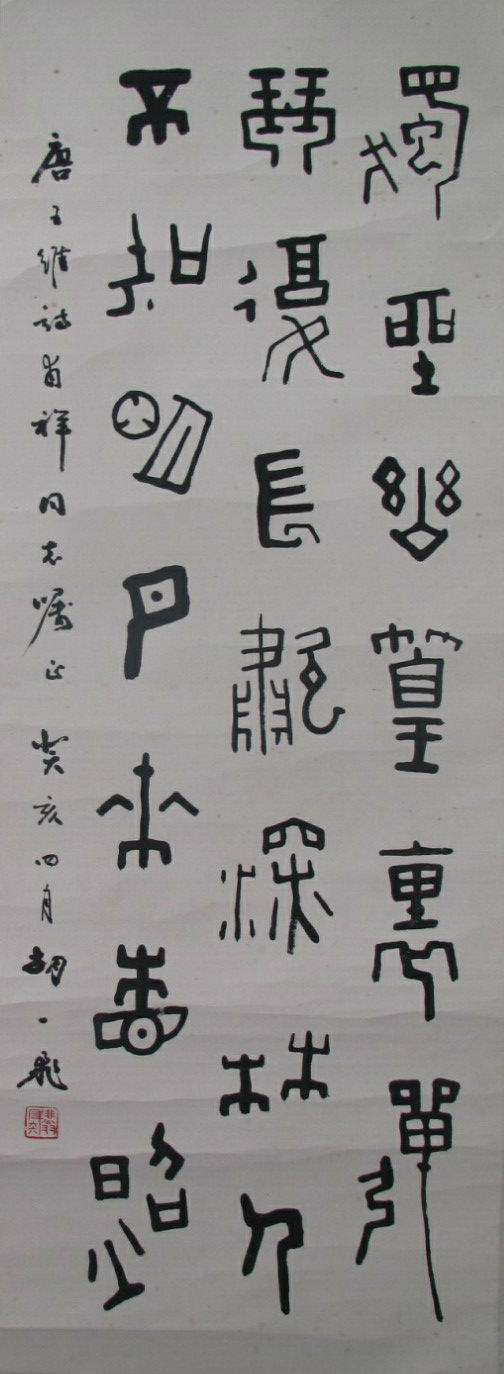 獨坐幽篁裏彈
琴復長嘯深林人
不知明月來相照
唐王維詩 祥同志嘱正 癸亥四月 胡一飛